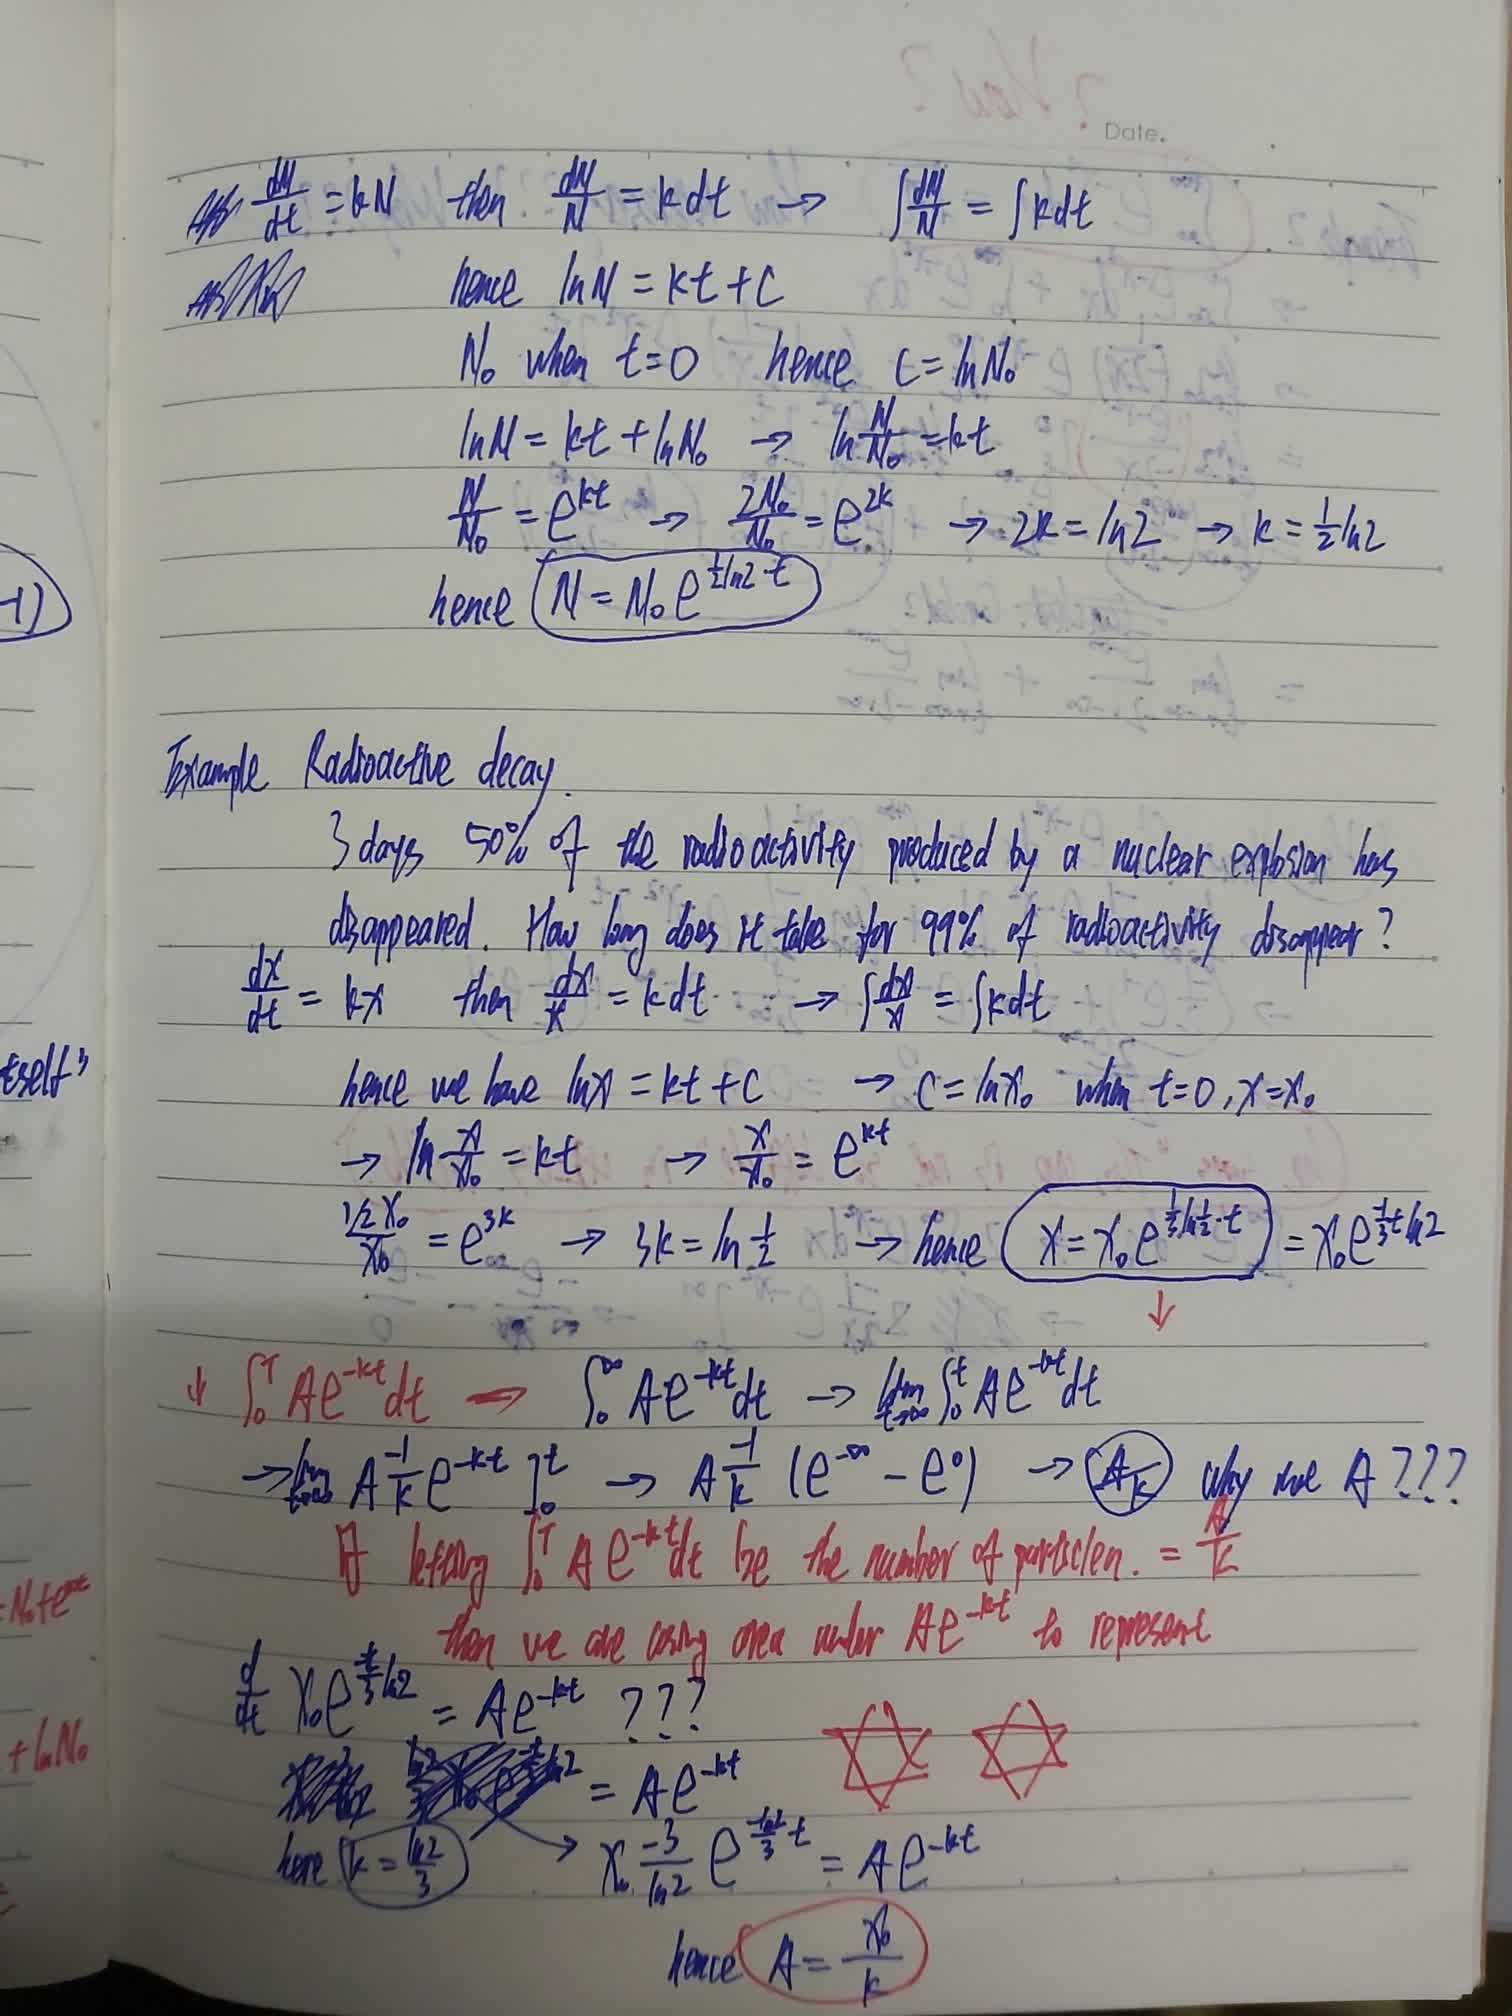 Date.
dN/dt = kN then dN/N = kdt → ∫dN/N = ∫kdt
hence lnN = kt + C
N₀ when t=0 hence C = lnN₀
lnN = kt + lnN₀ → ln N/N₀ = kt
N/N₀ = e^{kt} → 2N₀/N₀ = e^{2k} → 2k = ln2 → k = 1/2 ln2
-1)
hence N = N₀ e^{1/2 ln2·t}
Example Radioactive decay.
3 days 50% of the radioactivity produced by a nuclear explosion has
disappeared. How long does it take for 99% of radioactivity disappear?
dx/dt = kx then dx/x = kdt → ∫dx/x = ∫kdt
tself"
hence we have lnx = kt + C → C = lnx₀ when t=0, x=x₀
→ ln x/x₀ = kt → x/x₀ = e^{kt}
1/2 x₀/x₀ = e^{3k} → 3k = ln 1/2 → hence x = x₀ e^{1/3 ln 1/2·t} = x₀ e^{-1/3 t ln2}
↓
↓ ∫₀^T Ae^{-kt} dt → ∫₀^∞ Ae^{-kt} dt → lim_{t→∞} ∫₀^t Ae^{-kt} dt
→ lim_{t→∞} A -1/k e^{-kt} ]₀^t → A -1/k (e^{-∞} - e^0) → A/k why not A ???
If letting ∫₀^T Ae^{-kt} dt be the number of particlen. = A/k
then we are using area under Ae^{-kt} to represent
d/dt x₀ e^{-t/3 ln2} = Ae^{-kt} ???
+ lnN₀
= Ae^{-kt}
here k = ln2/3 → x₀ -3/ln2 e^{-ln2/3 t} = Ae^{-kt}
hence A = x₀/k